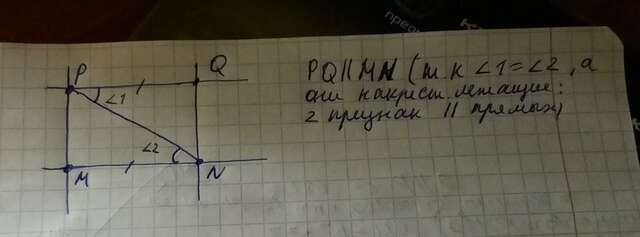 P
Q
∠1
∠2
M
N
PQ || MN (т.к ∠1=∠2, а
они накрест лежащие:
2 признак || прямых)